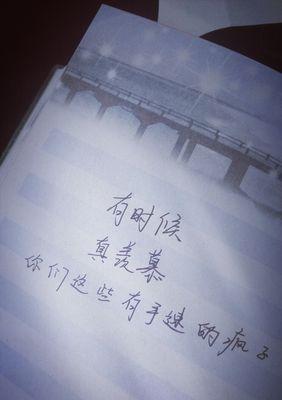 有时候
真羡慕
你们这些有手速的疯子